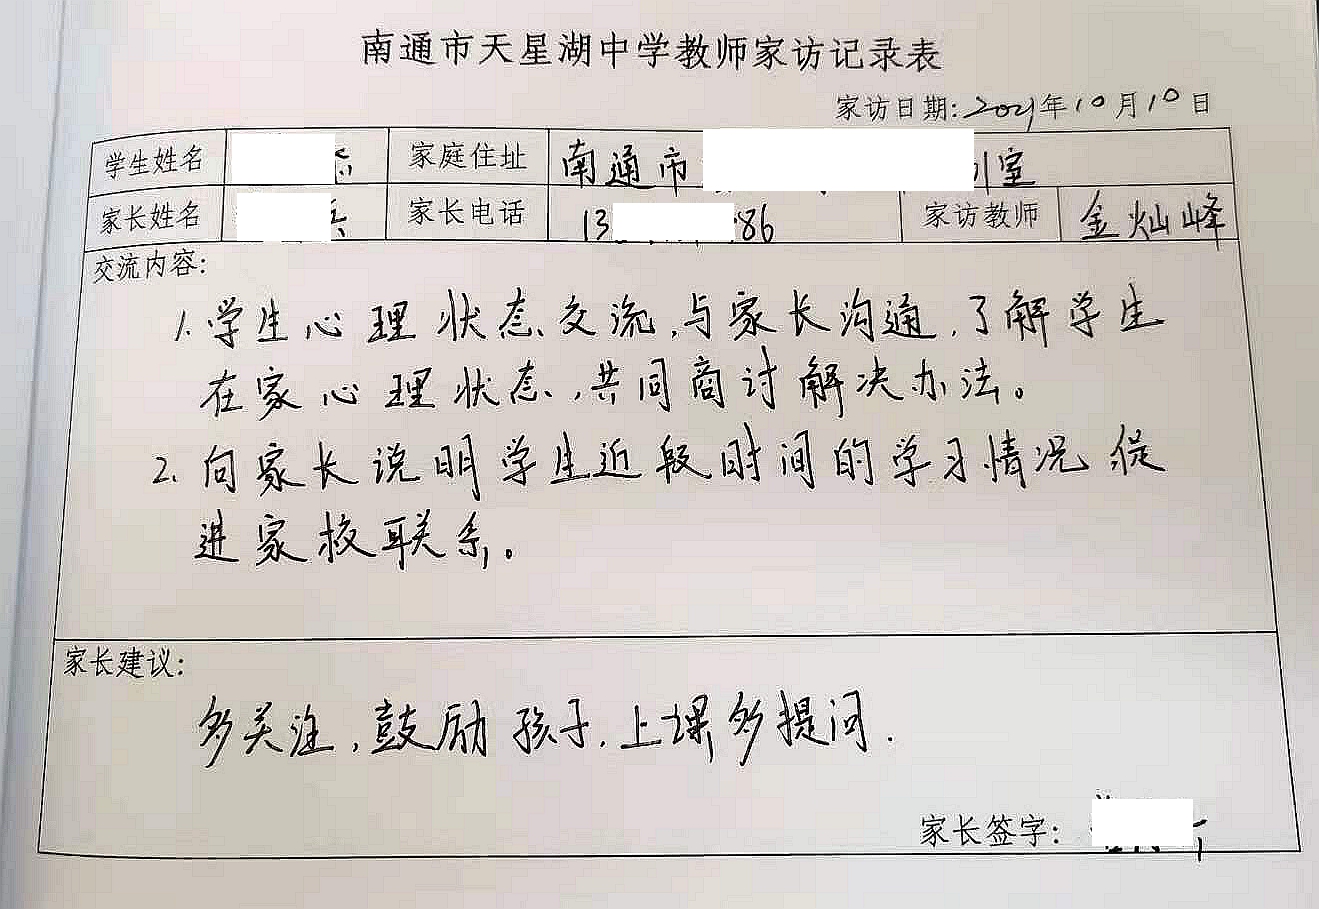 南通市天星湖中学教师家访记录表
家访日期:2021年10月10日
学生姓名 家庭住址 南通市 室
家长姓名 家长电话 13 86 家访教师 金灿峰
交流内容:
1.学生心理状态交流,与家长沟通,了解学生
在家心理状态,共同商讨解决办法。
2.向家长说明学生近段时间的学习情况 促
进家校联系。
家长建议:
多关注,鼓励孩子,上课多提问.
家长签字: